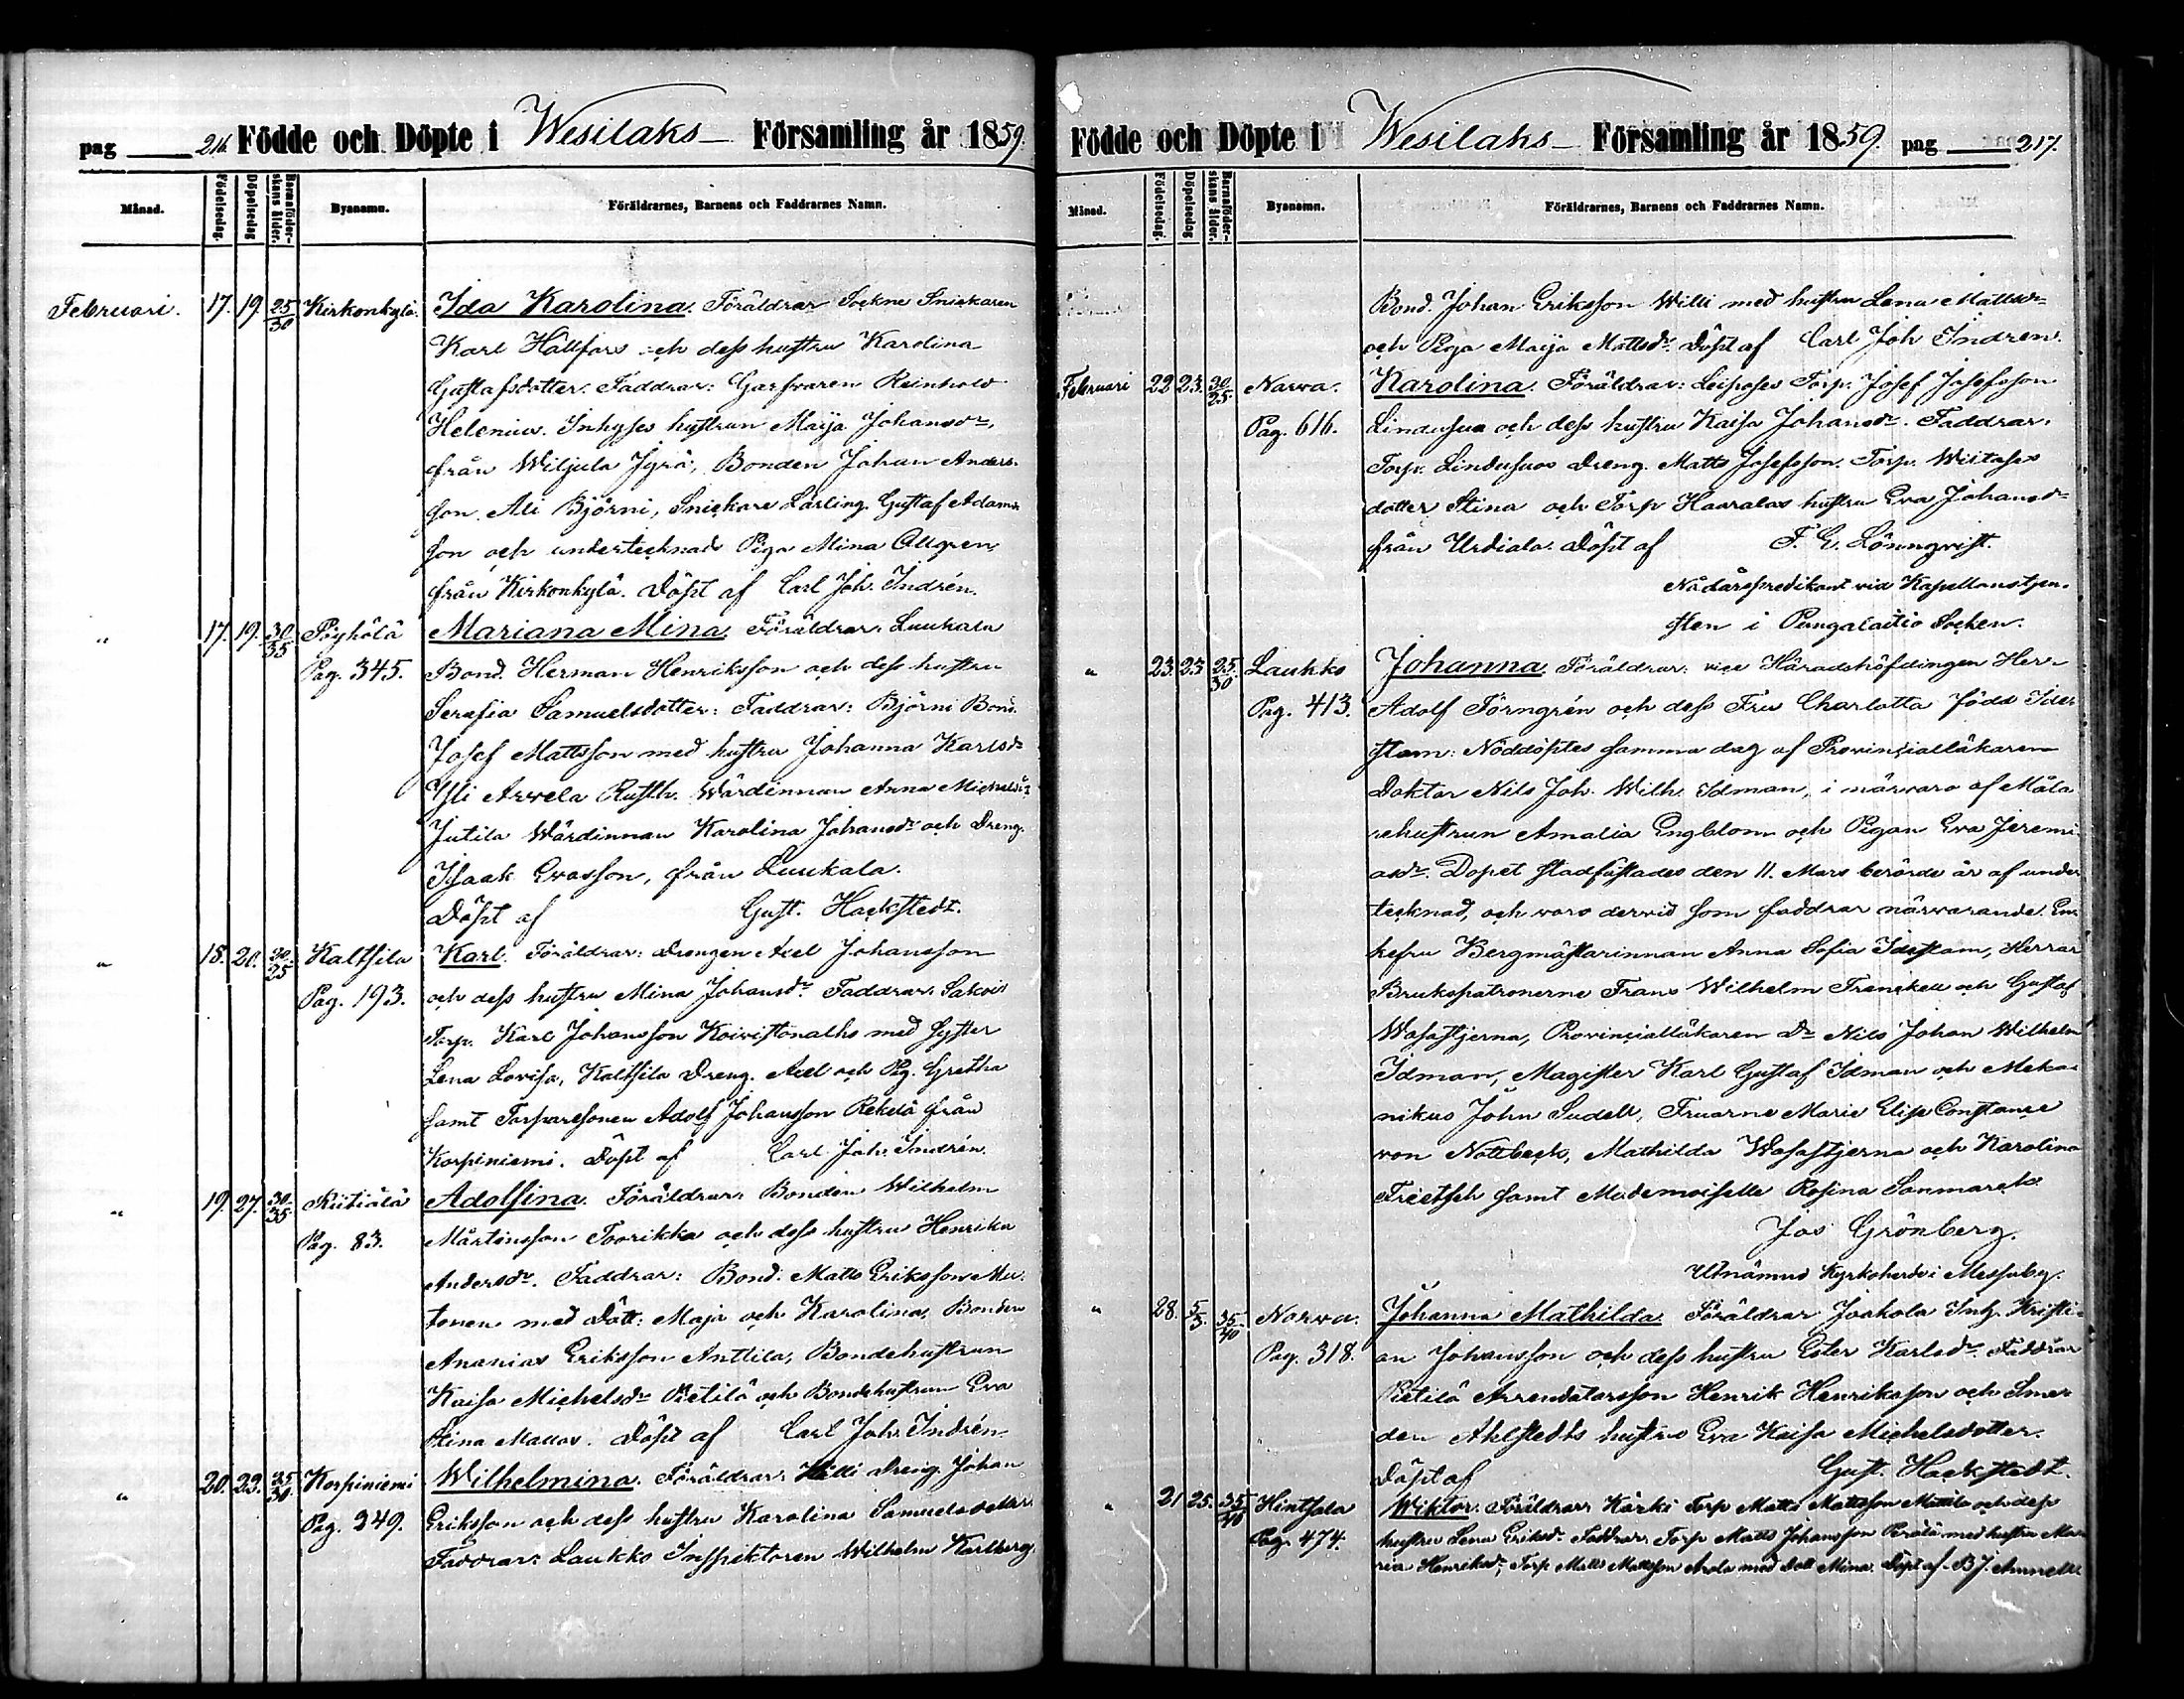 pag 216 Födde och Döpte i Wesilaks Församling år 1859.
Månad. Födelsedag. Döpelsedag Barnaföderskans ålder. Byanamn. Föräldrarnes, Barnens och Faddrarnes Namn.
Februari. 17. 19. 25/30 Kirkonkylä. Ida Karolina. Föräldrar Sockne Snickaren
Karl Hällfors och dess hustru Karolina
Gustafsdotter. Faddrar: Garfvaren Reinhold
Helenius. Inhyses hustrun Maija Johansdr,
från Wiljula Jyrä, Bonden Johan Anders-
son Ali Björni, Snickare Lärling Gustaf Adams
son och undertecknad Piga Mina Allgren,
från Kirkonkylä. Döpt af Carl Joh. Indrén.
" 17. 19. 30/35 Pöyhölä Mariana Mina. Föräldrar: Luukala
Pag. 345. Bond. Herman Henriksson och dess hustru
Serafia Samuelsdotter: Faddrar: Björni Bond.
Josef Mattsson med hustru Johanna Karlsdr
Yli Arvela Rusth. Wärdinnan Anna Michelsdr
Jutila Wärdinnan Karolina Johansdr och Dreng.
Isaak Evasson, från Luukala.
Döpt af Gust. Hackstedt.
" 18. 20. 30/35 Kaltsila Karl. Föräldrar: Drengen Axel Johansson
Pag. 193. och dess hustru Mina Johansdr. Faddrar: Sakois
Torp. Karl Johansson Koivistonalho med syster
Lena Lovisa, Kaltsila Dreng. Axel och Pig. Gretha
samt Torparesonen Adolf Johansson Rekelä från
Korpiniemi. Döpt af Carl Joh. Indrén.
" 19. 27. 30/35 Kiitiälä Adolfina. Föräldrar: Bonden Wilhelm
Pag. 83. Mårtensson Toorikka och dess hustru Henrika
Andersdr. Faddrar: Bond. Matts Eriksson Mu-
tonen med Dött: Maja och Karolina, Bonden
Ananias Eriksson Anttila, Bondehustrun
Kaisa Michelsdr Pietilä och Bondehustrun Eva
Stina Mattas. Döpt af Carl Joh. Indrén
" 20. 23. 25/30 Korpiniemi Wilhelmina. Föräldrar: Willi dreng. Johan
Pag. 249. Eriksson och dess hustru Karolina Samuelsdotter.
Faddrar: Laukko Inspektoren Wilhelm Karlberg.
Födde och Döpte i Wesilaks Församling år 1859. pag 217.
Månad. Födelsedag. Döpelsedag Barnaföderskans ålder. Byanamn. Föräldrarnes, Barnens och Faddrarnes Namn.
Bond. Johan Eriksson Willi med hustru Lena Mattsdr
och Piga Maija Mattsdr. Döpt af Carl Joh Indren.
Februari 22 23. 30/25. Narva. Karolina. Föräldrar: Torp. Josef Josefsson
Pag. 616. Lindusuo och dess hustru Kaisa Johansdr. Faddrar.
Torp. Lindusuos Dreng. Matts Josefsson. Torp. Wiitases
dotter Stina och Torp Haaralas hustru Eva Johansdr
från Urdiala. Döpt af F. E. Lönnqvist.
Nådårspredikant vid Kapellanstjen-
sten i Pungalaitio Socken.
" 23. 23 25/30 Laukko Johanna. Föräldrar: vice Häradshöfdingen Herr
Pag. 413. Adolf Törngrén och dess Fru Charlotta född Ide-
stam: Nöddöptes samma dag af Provincialläkaren
Doktor Nils Joh. Wilh. Idman, i närvaro af Måla
rehustrun Amalia Engblom och Pigan Eva Jeremi
asdr. Dopet stadfästades den 11. Mars berörde år af under
tecknad, och voro dervid som faddrar närvarande. En-
kefru Bergmästarinnan Anna Sofia Idestam, Herrar
Brukspatronerne Frans Wilhelm Frenckell och Gustaf
Wasastjerna, Provincialläkaren Dr Nils Johan Wilhelm
Idman, Magister Karl Gustaf Idman och Meka-
nikus John Sudell, Fruarne Marie Elise Constance
von Nottbeck, Mathilda Wasastjerna och Karolina
Frietsch samt Mademoiselle Rosina Sanmark.
Jos Grönberg.
Utnämnd Kyrkoherde i Messuby.
" 28. 5/3. 35/40 Narva. Johanna Mathilda. Föräldrar Jaakola Inh. Kristi-
Pag. 318. an Johansson och dess hustru Ester Karlsdr. Faddrar
Pietilä Arrendatorsson Henrik Henriksson och Sme-
den Ahlstedts hustru Eva Kaisa Michelsdotter.
Döpt af Gust. Hackstedt.
" 21 25. 35/40 Hintsala Wiktor. Föräldrar Kärki Torp Matts Mattsson Mattila och dess
Pag. 474. hustru Lena Eriksdr. Faddrar. Torp Matts Johansson Perälä med hustru Ma-
ria Henriksdr, Torp Matts Mattsson Arola med Dott Mina. Döpt af B J.